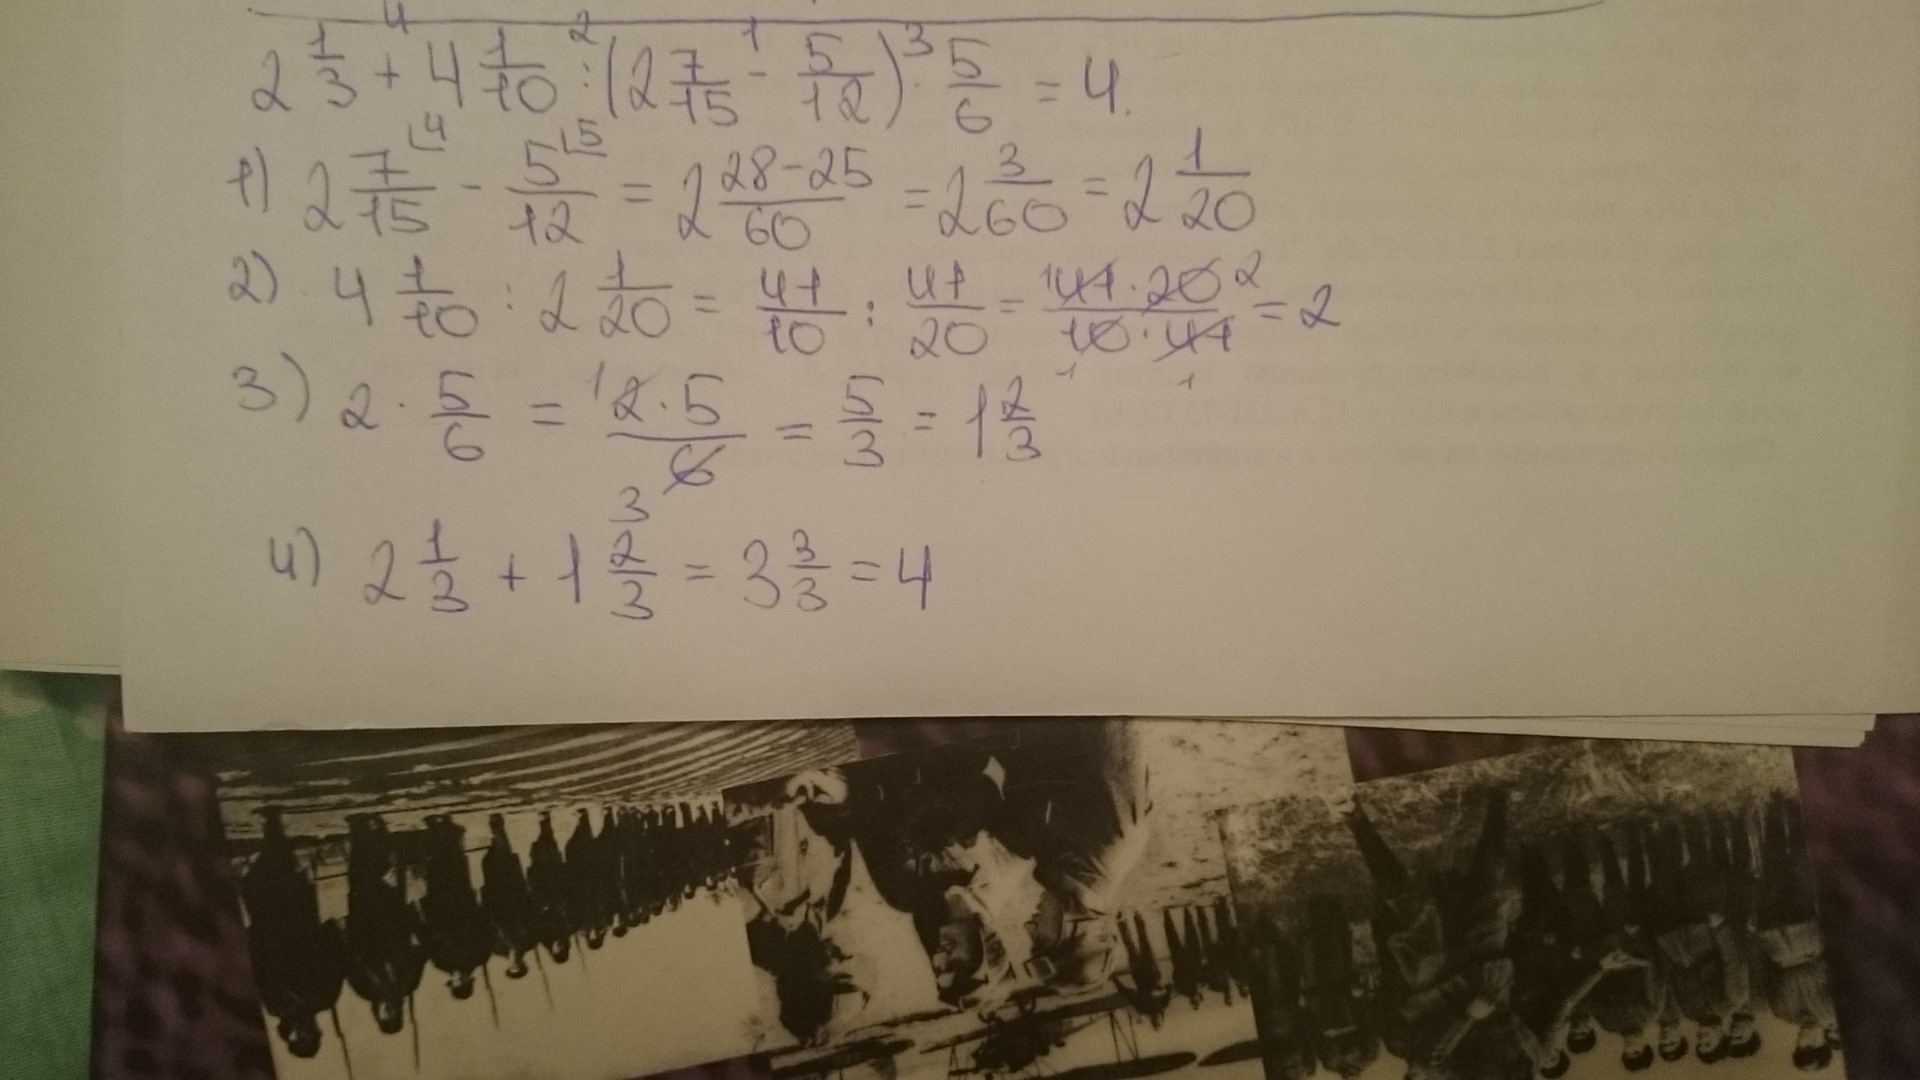 2 1/3 + 4 1/10 : (2 7/15 - 5/12) · 5/6 = 4.
1) 2 7/15 - 5/12 = 2 28-25/60 = 2 3/60 = 2 1/20
2) 4 1/10 : 2 1/20 = 41/10 : 41/20 = 41·20/10·41 = 2
3) 2 · 5/6 = 2·5/6 = 5/3 = 1 2/3
4) 2 1/3 + 1 2/3 = 3 3/3 = 4